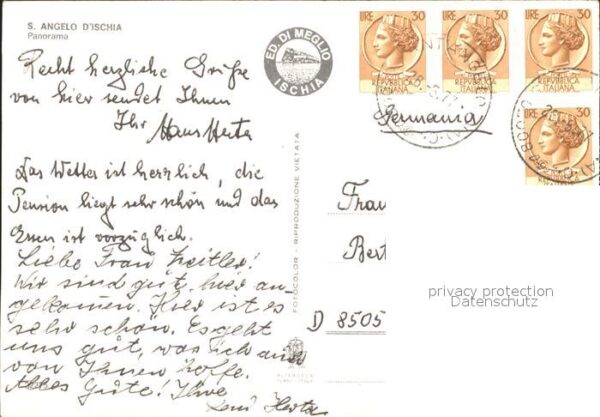 S. ANGELO D'ISCHIA
Panorama
Recht herzliche Grüße
von hier sendet Ihnen
Ihr Hans Herta
Das Wetter ist herrlich, die
Pension liegt sehr schön und das
Essen ist vorzüglich.
Liebe Frau Zeitler!
Wir sind gut hier an-
gekommen. Hier ist es
sehr schön. Es geht
uns gut, was ich auch
von Ihnen hoffe.
Alles Gute! Ihre
Leni Herta
ED. DI MEGLIO
ISCHIA
FOTOCOLOR - RIPRODUZIONE VIETATA
LIRE 30
REPUBBLICA
ITALIANA
LIRE 30
REPUBBLICA
ITALIANA
LIRE 30
REPUBBLICA
ITALIANA
LIRE 30
REPUBBLICA
ITALIANA
Germania
Frau
Bert
D 8505
privacy protection
Datenschutz